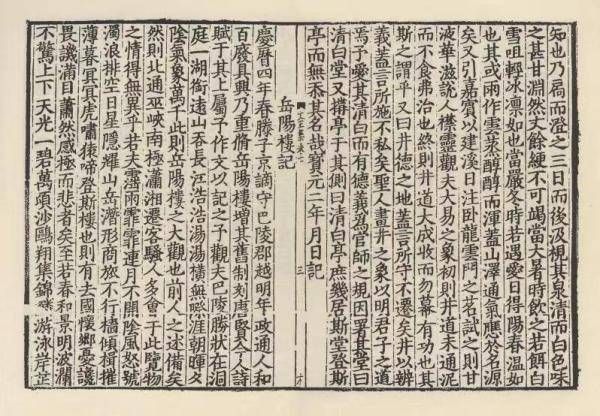 知也乃扃而澄之三日而後汲視其泉清而白色味
之甚甘淵然丈餘綆不可竭當大暑時飲之若餌白
雪咀輕冰凜如也當嚴冬時若遇愛日得陽春溫如
也其或雨作雲蒸醇醇而渾蓋山澤通氣應於名源
矣又引嘉賓以建溪日注臥龍雲門之茗試之則甘
液華滋說人襟靈觀夫大易之象初則井道未通泥
而不食弗治也終則井道大成收而勿幕有功也其
斯之謂乎又曰井德之地蓋言所守不遷矣井以辨
義蓋言所施不私矣聖人畫井之象以明君子之道
焉予愛其清白而有德義為官師之規因署其堂曰
清白堂又構亭于其側曰清白亭庶幾居斯堂登斯
亭而無忝其名哉寶元二年月日記
三
方
岳陽樓記
慶曆四年春滕子京謫守巴陵郡越明年政通人和
百廢具興乃重修岳陽樓增其舊制刻唐賢今人詩
賦于其上屬予作文以記之予觀夫巴陵勝狀在洞
庭一湖銜遠山吞長江浩浩湯湯橫無際涯朝暉夕
陰氣象萬千此則岳陽樓之大觀也前人之述備矣
然則北通巫峽南極瀟湘遷客騷人多會于此覽物
之情得無異乎若夫霪雨霏霏連月不開陰風怒號
濁浪排空日星隱耀山岳潛形商旅不行檣傾楫摧
薄暮冥冥虎嘯猿啼登斯樓也則有去國懷鄉憂讒
畏譏滿目蕭然感極而悲者矣至若春和景明波瀾
不驚上下天光一碧萬頃沙鷗翔集錦游泳岸芷